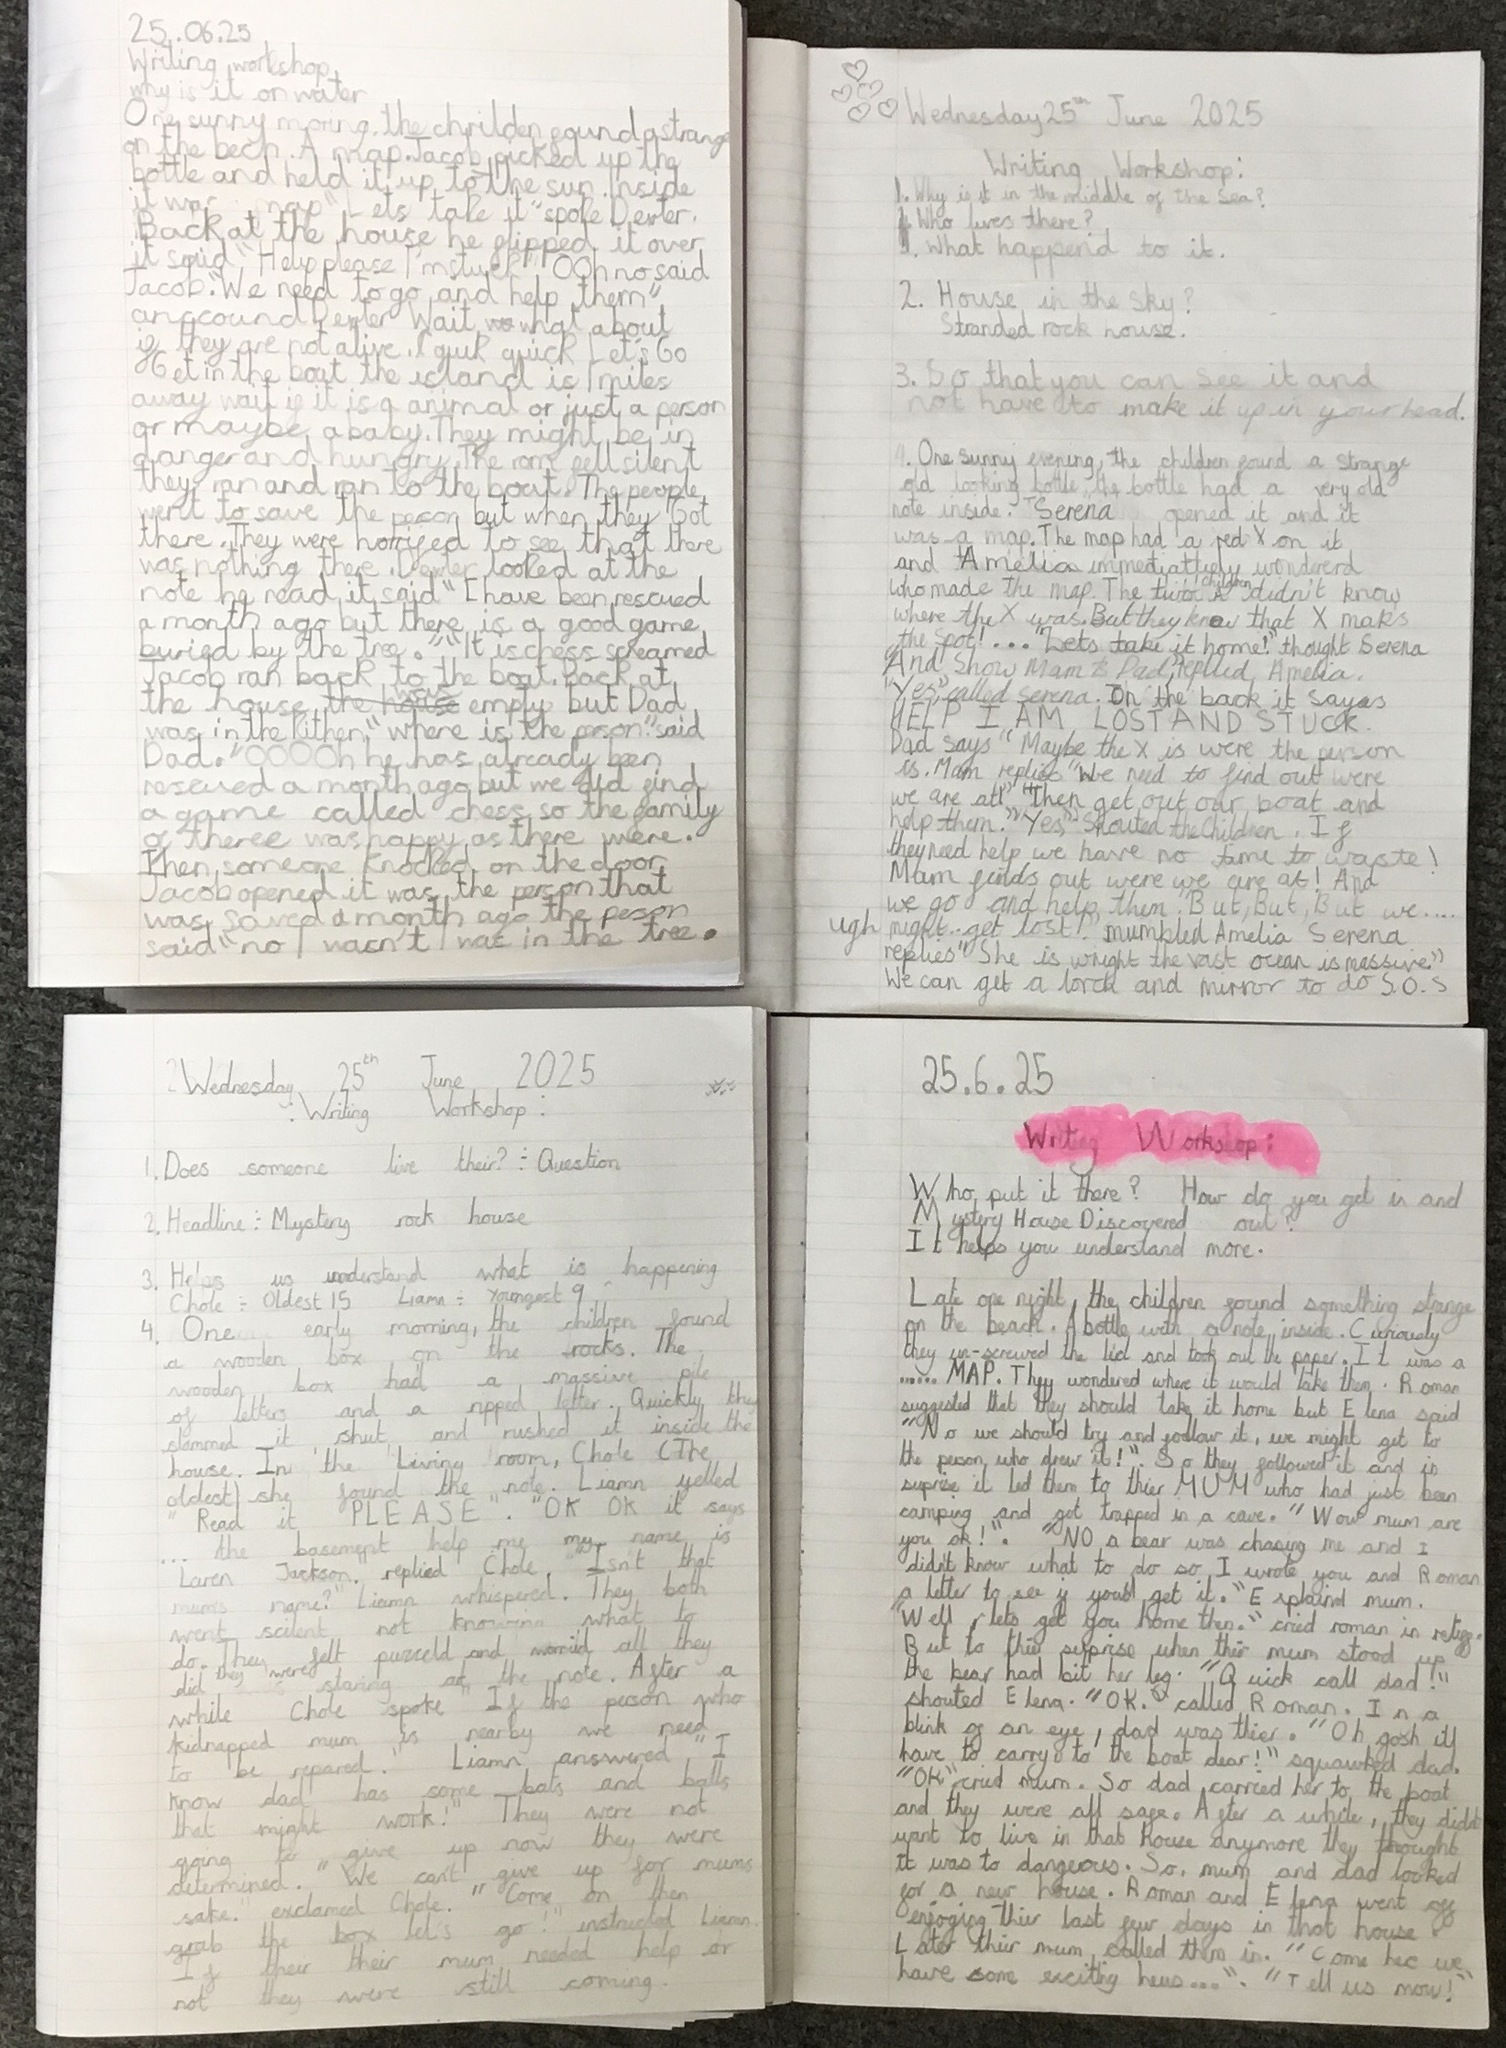 25.06.25
Writing workshop
why is it on water
One sunny moring, the chrilden found a strange
on the bech. A map. Jacob picked up the
bottle and held it up to the sun. Inside
it war map" Lets take it "spoke Dexter.
Back at the house he flipped it over
it said "Help please I'm stuck" OOh no said
Jacob. "We need to go and help them"
Dexter Wait, what about
if they are not alive. quick Let's Go
Get in the boat the island is 1 miles
away wait if it is a animal or just a person
or maybe a baby. They might be in
danger and hungry. The rom fell silent
they ran and ran to the boat. The people
went to save the person but when they Got
there. They were horrifed to see that there
was nothing there. Dexter looked at the
note he read it said "I have been rescued
a month ago but there is a good game
buried by the tree." "It is chess screamed
Jacob ran back to the boat. Back at
the house the house was empty but Dad
was in the kithen, "where is the person "said
Dad. "OOOOh he has already been
reserved a month ago but we did find
a game called chess so the family
of theree was happy as there were.
Then someone knocked on the door
Jacob opened it was the person that
was saved a month ago the person
said "no I wasn't I was in the tree.
Wednesday 25th June 2025
Writing Workshop:
1. Why is it in the middle of the sea?
1. Who lives there?
1. What happend to it.
2. House in the sky?
Stranded rock house.
3. So that you can see it and
not have to make it up in your head.
4. One sunny evening, the children found a strange
old looking bottle, the bottle had a very old
note inside. Serena opened it and it
was a map. The map had a red X on it
and Amelia immediattely wonderd
who made the map. The two children didn't know
where the X was. But they knew that X maks
the spot!... "Lets take it home!" thought Serena
"And Show Mam & Dad, replied Amelia.
"Yes", called Serena. On the back it sayas
HELP I AM LOST AND STUCK.
Dad says "Maybe the X is were the person
is. Mam replies "We need to find out were
we are at!" "Then get out our boat and
help them." "Yes" Shouted the Children. If
they need help we have no time to waste!
Mam finds out were we are at! And
we go and help them. But, But, But we....
ugh might.. get lost!" mumbled Amelia Serena
replies "She is wright the vast ocean is massive"
We can get a torch and mirror to do S.O.S
Wednesday 25th June 2025
: Writing Workshop :
1. Does someone live their? ÷ Question
2. Headline ÷ Mystery rock house
3. Helps us understand what is happening
Chole ÷ Oldest 15 Liamn ÷ Youngest 9
4. One early morning, the children found
a wooden box on the rocks. The
wooden box had a massive pile
of letters and a ripped letter. Quickly they
slammed it shut, and rushed it inside the
house. In the Living room, Chole (The
oldest) she found the note. Liamn yelled
"Read it PLEASE". "OK OK it says
... the basement help me my name is
Laren Jackson. replied Chole, "Isn't that
mums name?" Liamn whispered. They both
went scilent not knowing what to
do. They felt puzzeld and worrid all they
did they were staring at the note. After a
while Chole spoke "If the person who
kidnapped mum is nearby we need
to be repared." Liamn answered, "I
know dad has some bats and balls
that might work!" They were not
going to give up now they were
determined. "We cant give up for mums
sake." exclamed Chole. "Come on then
grab the box let's go!" instructed Liamn.
If their their mum needed help or
not they were still coming.
25.6.25
Writing Workshop:
Who put it there? How do you get in and
Mystery House Discovered out?
It helps you understand more.
Late one night, the children found something strange
on the beach. A bottle with a note inside. Curiously
they un-screwed the lid and took out the paper. It was a
...... MAP. They wondered where it would take them. Roman
suggested that they should take it home but Elena said
"No we should try and follow it, we might get to
the person who drew it!". So they followed it and in
suprise it led them to thier MUM who had just been
camping and got trapped in a cave. "Wow mum are
you ok!". "NO a bear was chasing me and I
didn't know what to do so I wrote you and Roman
a letter to see if you'll get it." Explaind mum.
"Well, lets get you home then." cried roman in
But to thier surprise when their mum stood up
the bear had bit her leg. "Quick call dad!"
shouted Elena. "OK." called Roman. In a
blink of an eye, dad was thier. "Oh gosh ill
have to carry to the boat dear!" squawked dad.
"OK" cried mum. So dad carried her to the boat
and they were all safe. After a while, they didnt
want to live in that house anymore they thought
it was to dangeous. So, mum and dad looked
for a new house. Roman and Elena went off
enjoging thier last few days in that house.
Later thier mum called them in. "Come hec we
have some exciting news...". "Tell us now!"